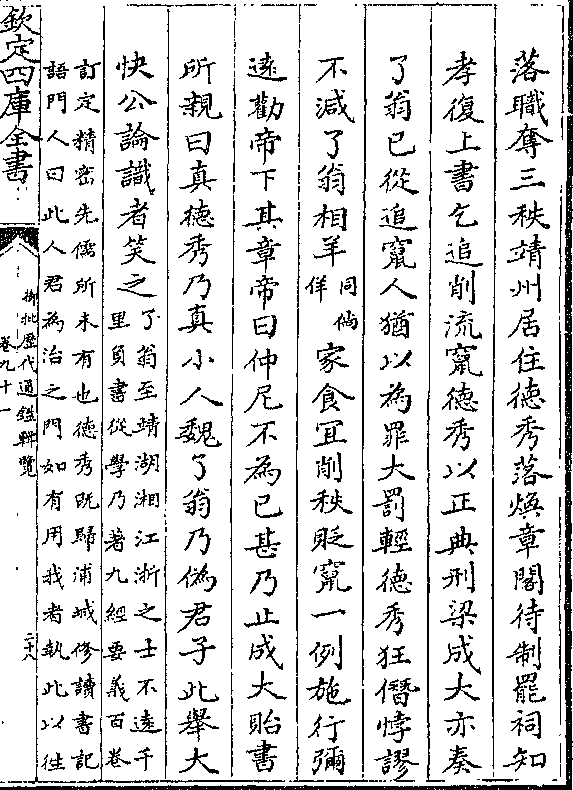 落職奪三秩靖州居住德秀落煥章閣待制罷祠知
孝復上書乞追削流竄德秀以正典刑梁成大亦奏
了翁已從追竄人猶以為罪大罰輕德秀狂僭悖謬
不減了翁相羊同徜佯家食宜削秩貶竄一例施行彌
遠勸帝下其章帝曰仲尼不為已甚乃止成大貽書
所親曰真德秀乃真小人魏了翁乃偽君子此舉大
快公論識者笑之了翁至靖湖湘江浙之士不遠千
里負書從學乃著九經要義百卷
訂定精密先儒所未有也德秀既歸浦城修讀書記
語門人曰此人君為治之門如有用我者執此以徃
欽定四庫全書
御批歴代通鑑輯覽
卷九十一
二十八